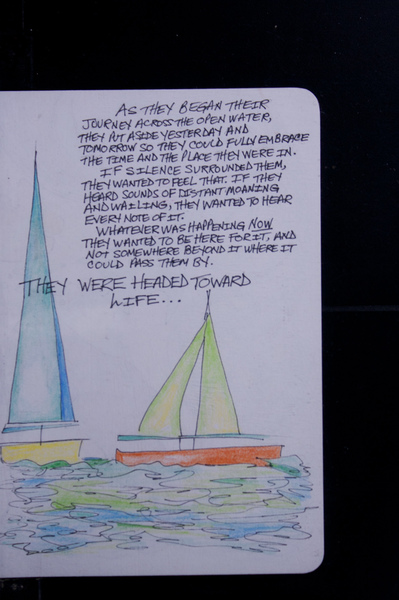 AS THEY BEGAN THEIR
JOURNEY ACROSS THE OPEN WATER,
THEY PUT ASIDE YESTERDAY AND
TOMORROW SO THEY COULD FULLY EMBRACE
THE TIME AND THE PLACE THEY WERE IN.
IF SILENCE SURROUNDED THEM,
THEY WANTED TO FEEL THAT. IF THEY
HEARD SOUNDS OF DISTANT MOANING
AND WAILING, THEY WANTED TO HEAR
EVERY NOTE OF IT.
WHATEVER WAS HAPPENING NOW
THEY WANTED TO BE HERE FOR IT, AND
NOT SOMEWHERE BEYOND IT WHERE IT
COULD PASS THEM BY.
THEY WERE HEADED TOWARD
LIFE...